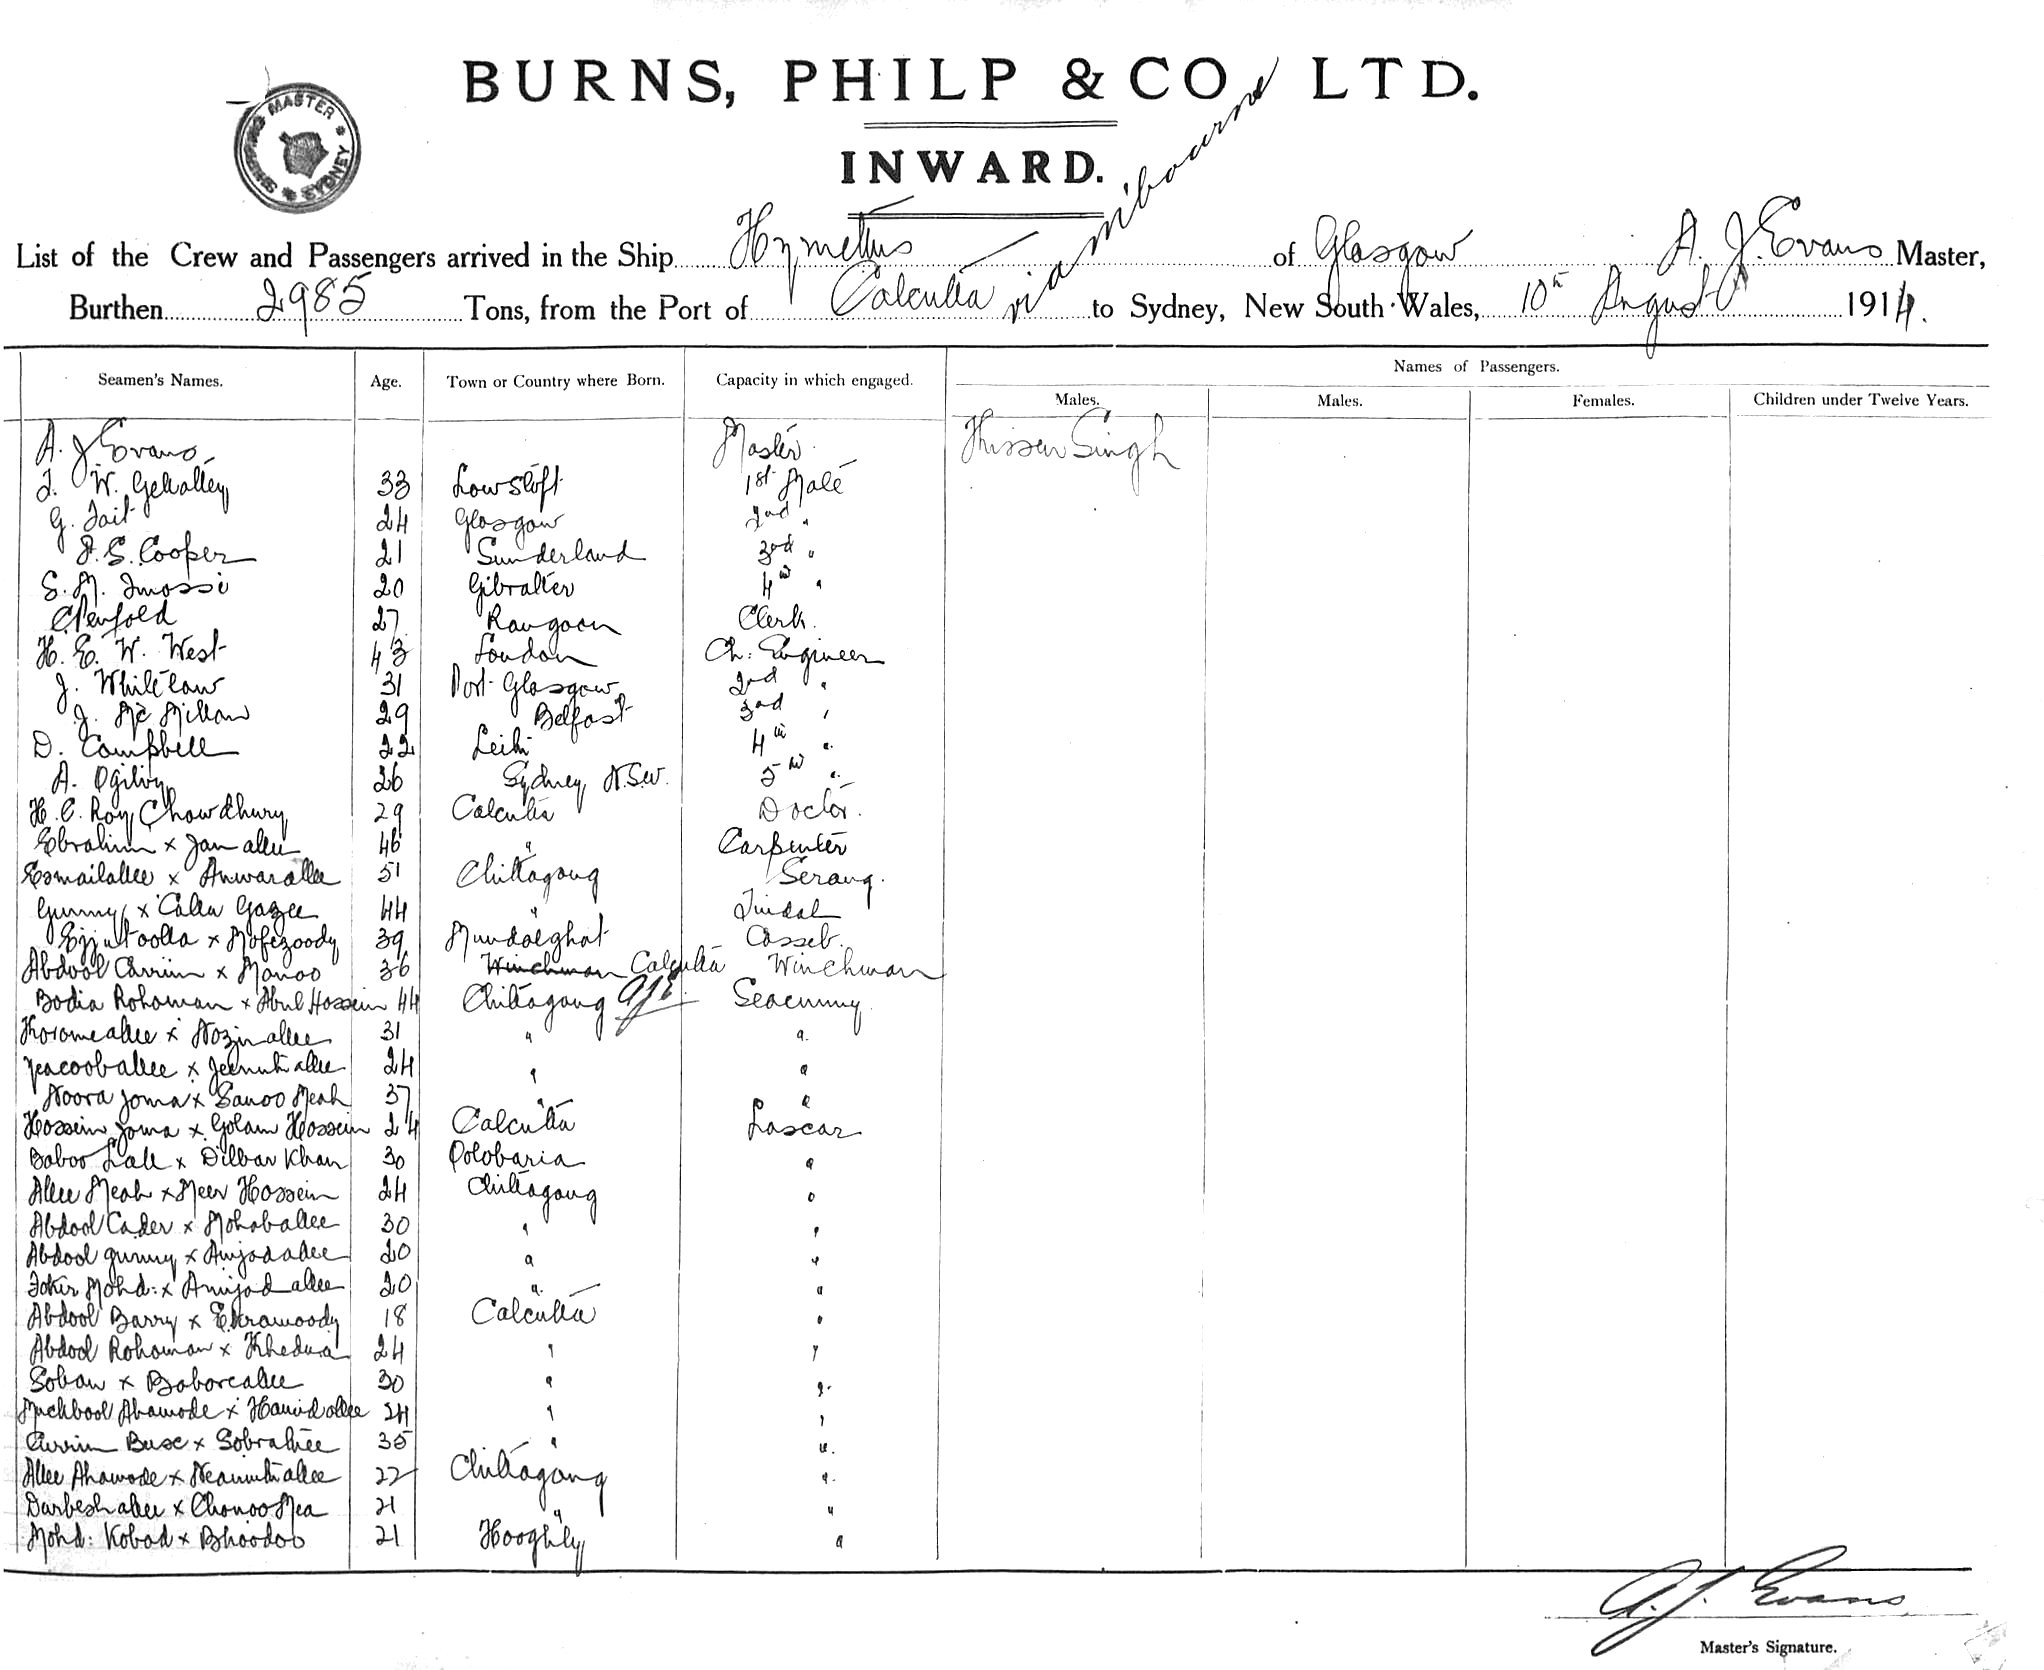 BURNS, PHILP & CO LTD.
SHIPPING MASTER SYDNEY
INWARD.
List of the Crew and Passengers arrived in the Ship Hymettus of Glasgow A. J. Evans Master,
Burthen 2985 Tons, from the Port of Calcutta via Melbourne to Sydney, New South Wales, 10th August 1914.
Seamen's Names. Age. Town or Country where Born. Capacity in which engaged. Names of Passengers.
Males. Males. Females. Children under Twelve Years.
A. J Evans Master Kissen Singh
W. 33 Lowstoft 1st Mate
G. Tait 24 Glasgow 2nd "
S. Cooper 21 Sunderland 3rd "
S. M. Imossi 20 Gibralter 4th "
C Penfold 27 Rangoon Clerk.
H. E. W. West 43 London Ch: Engineer
J. Whitelaw 31 Port Glasgow 2nd "
J. Mc Millan 29 Belfast 3rd "
D. Campbell 22 Leith 4th "
A. Ogilvy 26 Sydney N.S.W. 5th "
H. C. Roy Chowdhury 29 Calcutta Doctor.
Ebrahim x Jan allee 46 " Carpenter
Esmailallee x Anwarallee 51 Chittagong Serang.
Gunny x Calla Gazee 44 " Tindal
Ejjutoolla x Mofezoody 39 Mundalghat Casseb.
Abdool Carrim x Manoo 36 Winchman Calcutta Winchman
Bodia Rohoman x Abul Hossein 44 Chittagong AJE Seacunny
Koromeallee x Nozirallee 31 " "
Yeacooballee x 24 " "
Noora Joma x Sanoo Meah 37 " "
Hossein Joma x Golam Hossein 24 Calcutta Lascar
Baboo Lall x Dilbar Khan 30 Oolobaria "
Allee Meah x Meer Hossein 24 Chittagong "
Abdool Cader x Mohaballee 30 " "
Abdool Gunny x Amjadallee 20 " "
Fokir Mohd: x Amjad allee 20 " "
Abdool Barry x Ekramoody 18 Calcutta "
Abdool Rohoman x 24 " "
Soban x Baboreallee 30 " "
Muckbool Ahamode x Hamidallee 24 " "
Currim Buse x Sobratee 35 " "
Allee Ahamode x 22 Chittagong "
Durbeshallee x Chonoo Mea 21 " "
Mohd: Kobad x Bhoodoo 21 Hooghly "
A. J. Evans
Master's Signature.